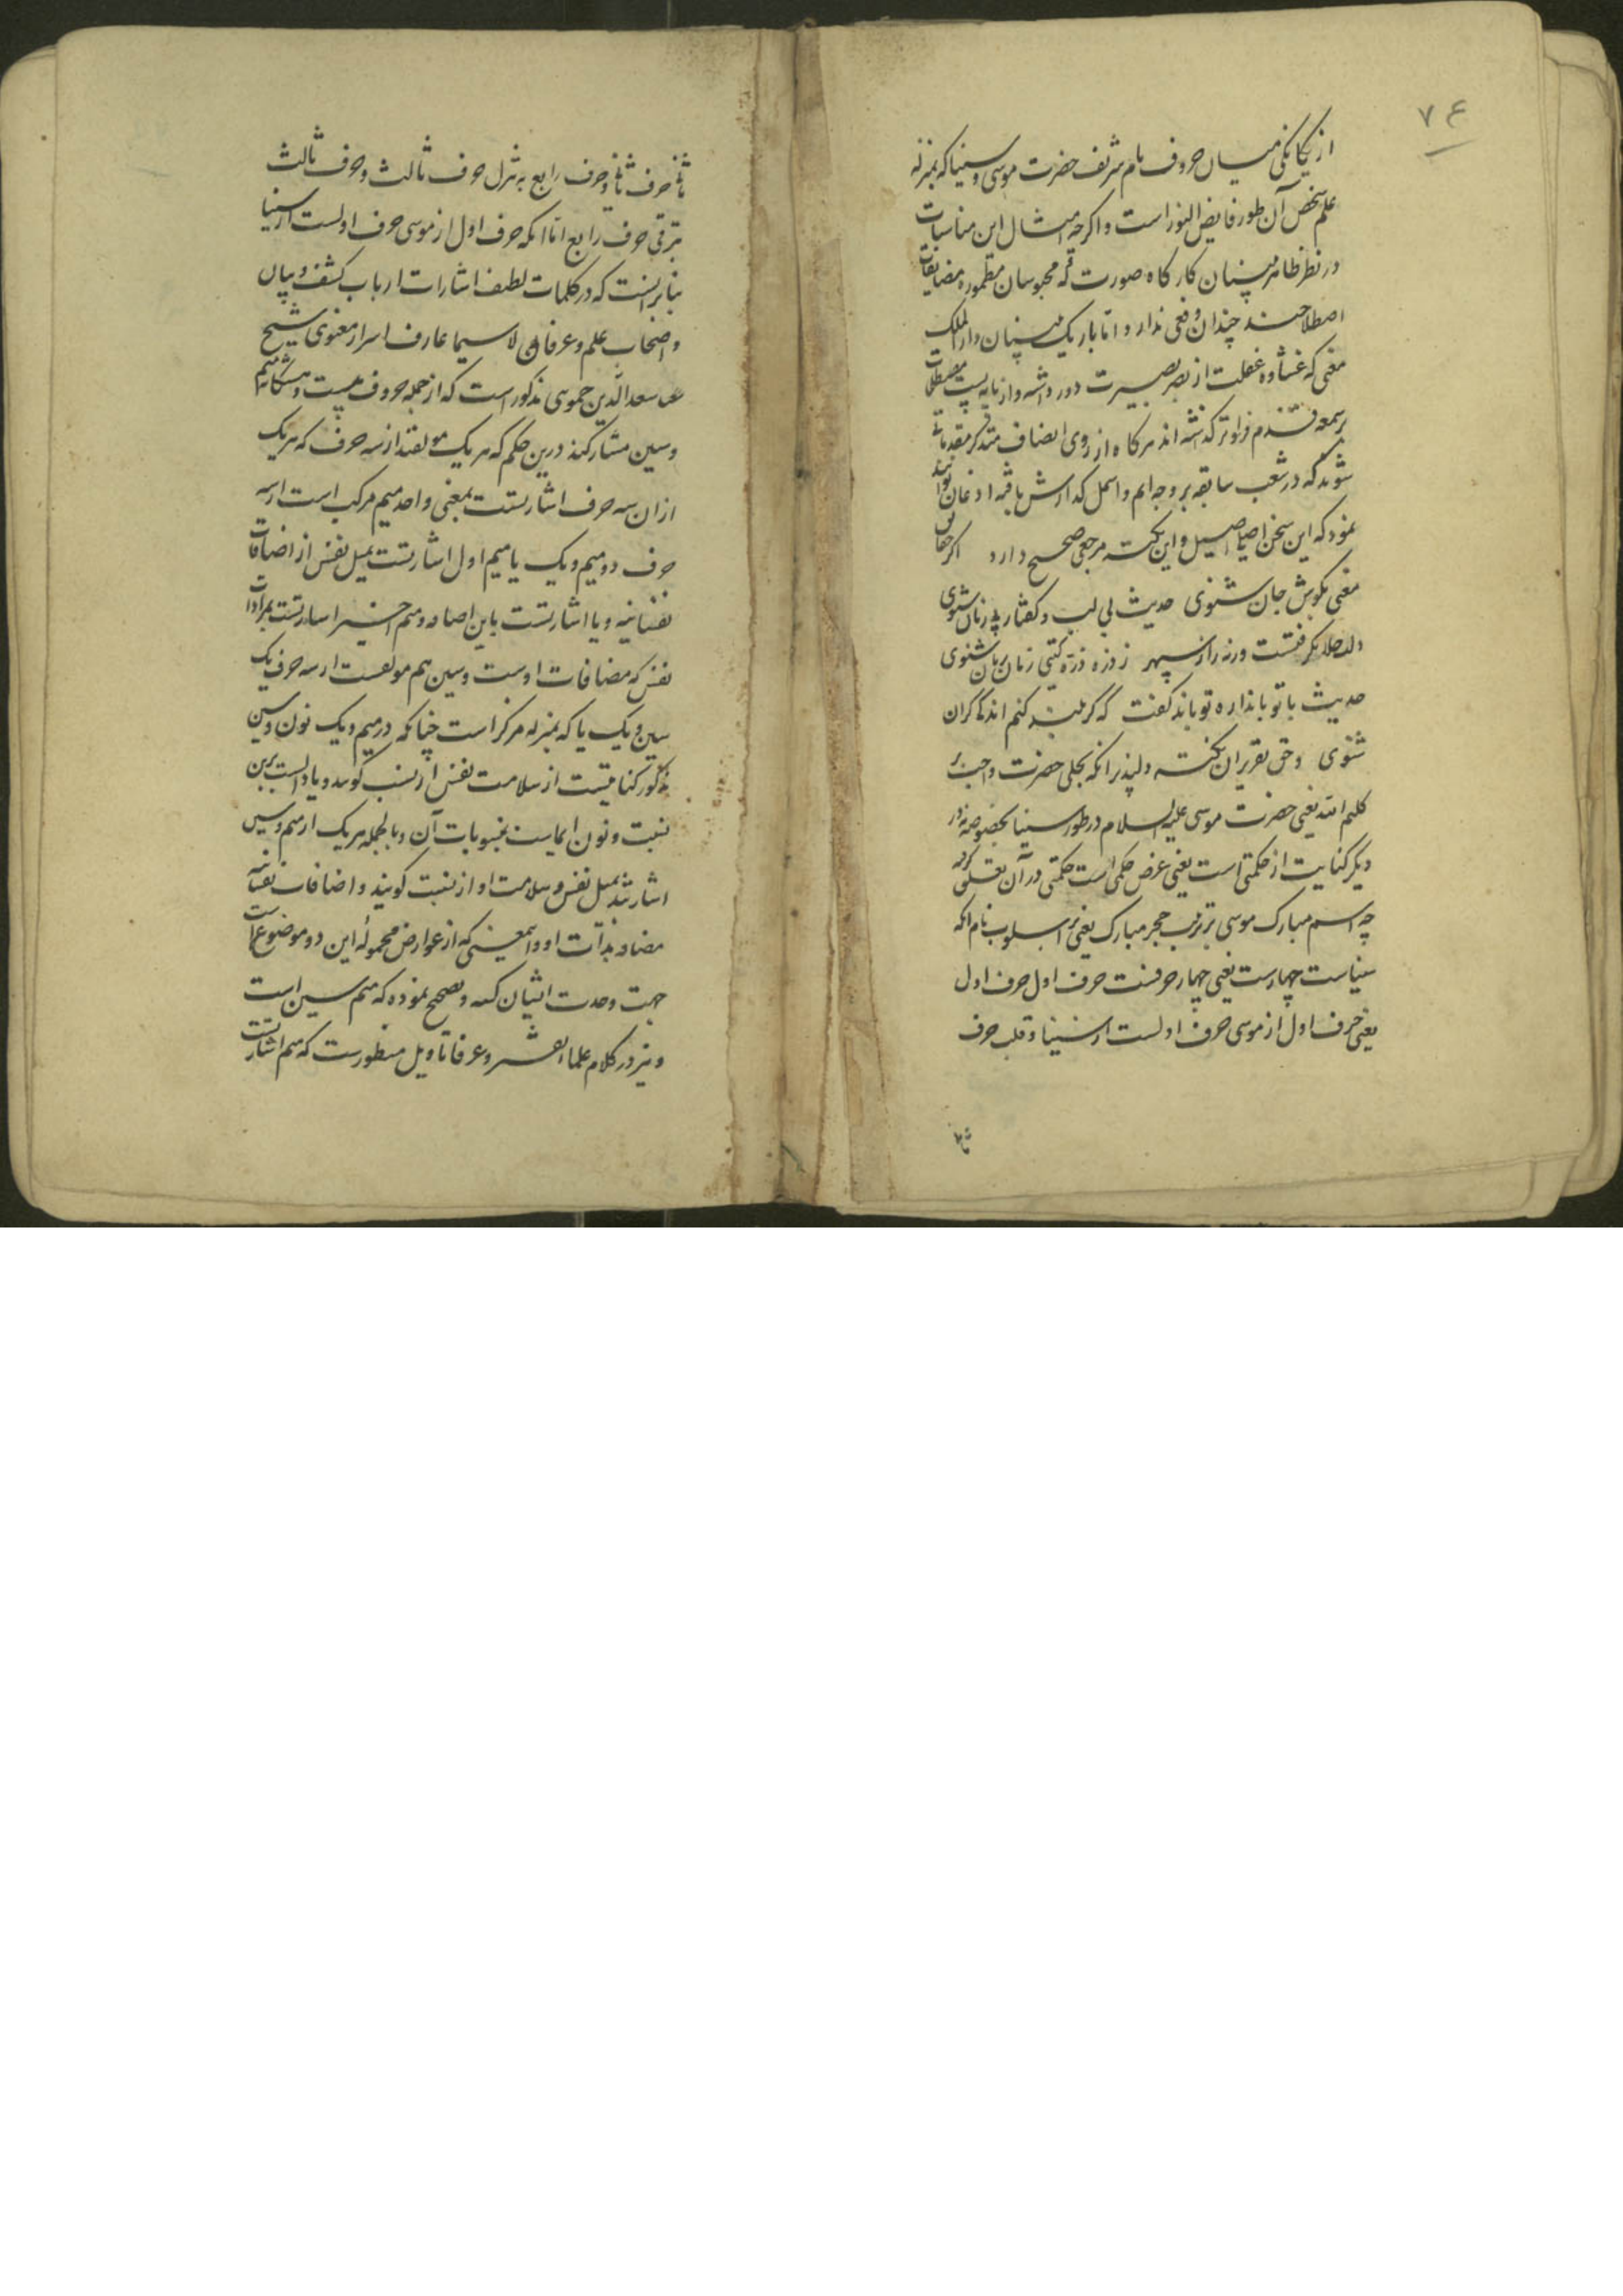 ۷۶
از یکانکی میان حروف نام شریف حضرت موسی و سینا که بمنزله
علم شخص آن طور فایض النور است و اکرچه امثال این مناسبات
در نظر ظاهر بینان کارکاه صورت که محبوسان مطموره مضایقات
اصطلاحند چندان وقعی ندارد اما باریک بینان دار الملک
معنی که غشاوه غفلت از بصر بصیرت دور داشته و از پایه پست مصطلحات
رسمعه قدم فراوتر کذشته اند هر کاه از روی انصاف متذکر مقدماتی
شوند که در شعب سابقه بر وجه اتم و اسمل کذارش یافته اذعان توانند
نمود که این سخن اصلی اصیل و این نکته مرجعی صحیح دارد اکر حقایق
معنی بکوش جان شنوی حدیث بی لب و کفتار بی زبان شنوی
دلت حلا نکرفتست ورنه راز سپهر ز ذره ذره کیتی زمان زمان شنوی
حدیث با تو باندازه تو باید کفت که کر بلند کنم اندکی کران
شنوی و حق تقریر این نکته دلپذیر آنکه تجلی حضرت واجب بر
کلیم الله یعنی حضرت موسی علیه السلام در طور سینا بخصوصه نه در
دیکر کنایت از حکمتی است یعنی غرض حکمی است حکمتی در آن تعقلی کرده
چه اسم مبارک موسی بر ترتیب حجر مبارک یعنی بر اسلوب نام انکه
سیناست چهارست یعنی چهار حرفست حرف اول حرف اول
یعنی حرف اول از موسی حرف اولست از سینا و قلب حرف
ثانی
ثانی حرف ثانی و حرف رابع به تنزل حرف ثالث و حرف ثالث
بترقی حرف رابع اما آنکه حرف اول از موسی حرف اولست از سینا
بنابر آنست که در کلمات لطیف اشارات ارباب کشف و بیان
و اصحاب علم و عرفان لاسیما عارف اسرار معنوی شیخ
سعد الدین حموی مذکور است که از جمله حروف بیست و هشتکانه میم
و سین مشارکند درین حکم که هر یک مولفند از سه حرف که هر یک
ازان سه حرف اشارتست بمعنی واحد میم مرکب است از سه
حرف دو میم و یک یا میم اول اشارتست بمیل نفس از اضافات
نفسانیه و یا اشارتست باین اضافه و میم اخیر اشارتست بمرادات
نفس که مضافات اوست و سین هم مولفست از سه حرف یک
سین و یک یا که بمنزله مرکز است چنانکه در میم و یک نون و سین
مذکور کنایتست از سلامت نفس از نسب کونیه و یا دالست برین
نسبت و نون ایماست بمنسوبات آن و بالجمله هر یک از میم و سین
اشارتند بمیل نفس و سلامت او از نسبت کونیه و اضافات نفسانیه
مضافه بذات او و این معنی که از عوارض محموله این دو موضوعست
جهت وحدت ایشان کشته و تصحیح نموده که میم سین است
و نیز در کلام علما تفسیر و عرفا تاویل مسطورست که میم اشارتست